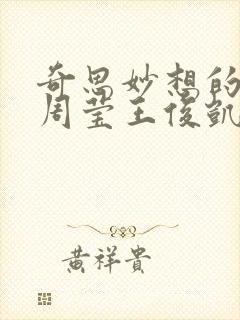 奇思妙想的
周莹王俊凯
黄祥贵